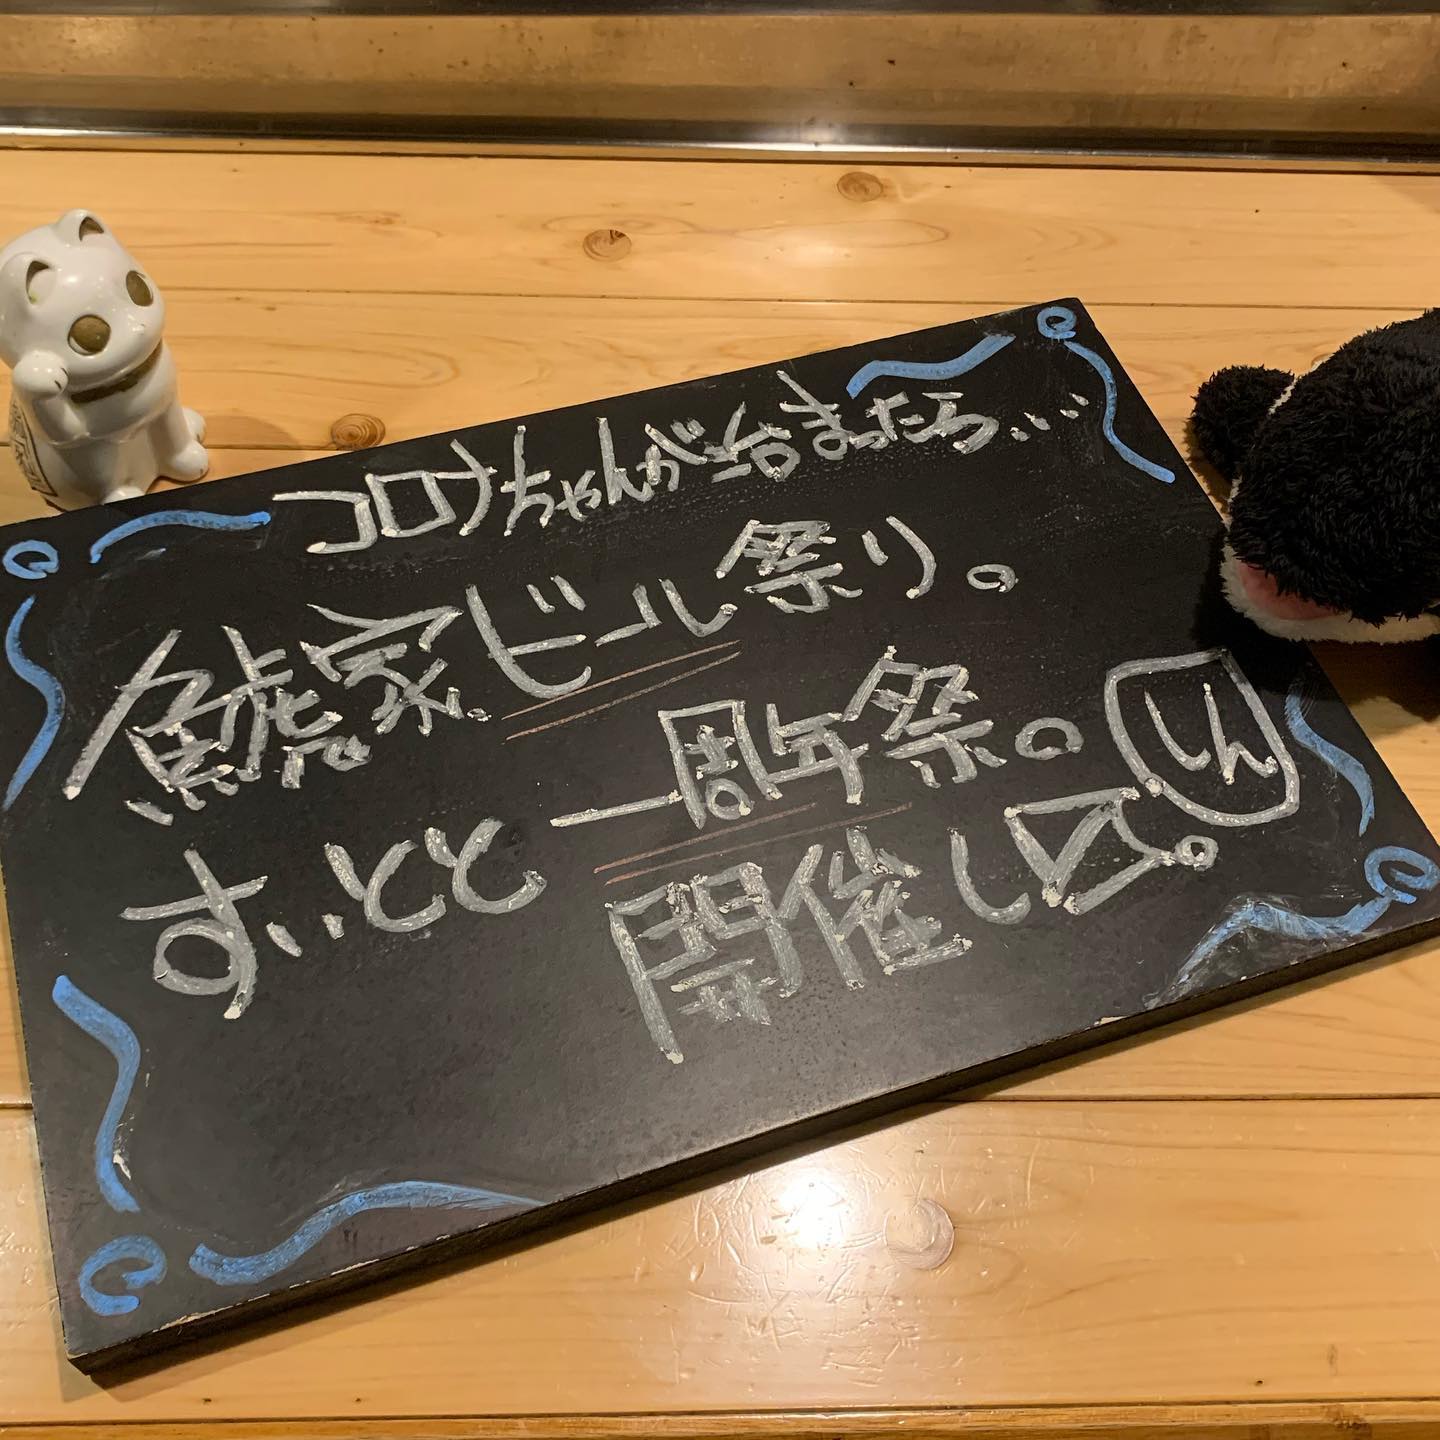 コロナちゃんが治まったら...
鯱家ビール祭り。
すぃとと一周年祭。
開催します。
しん